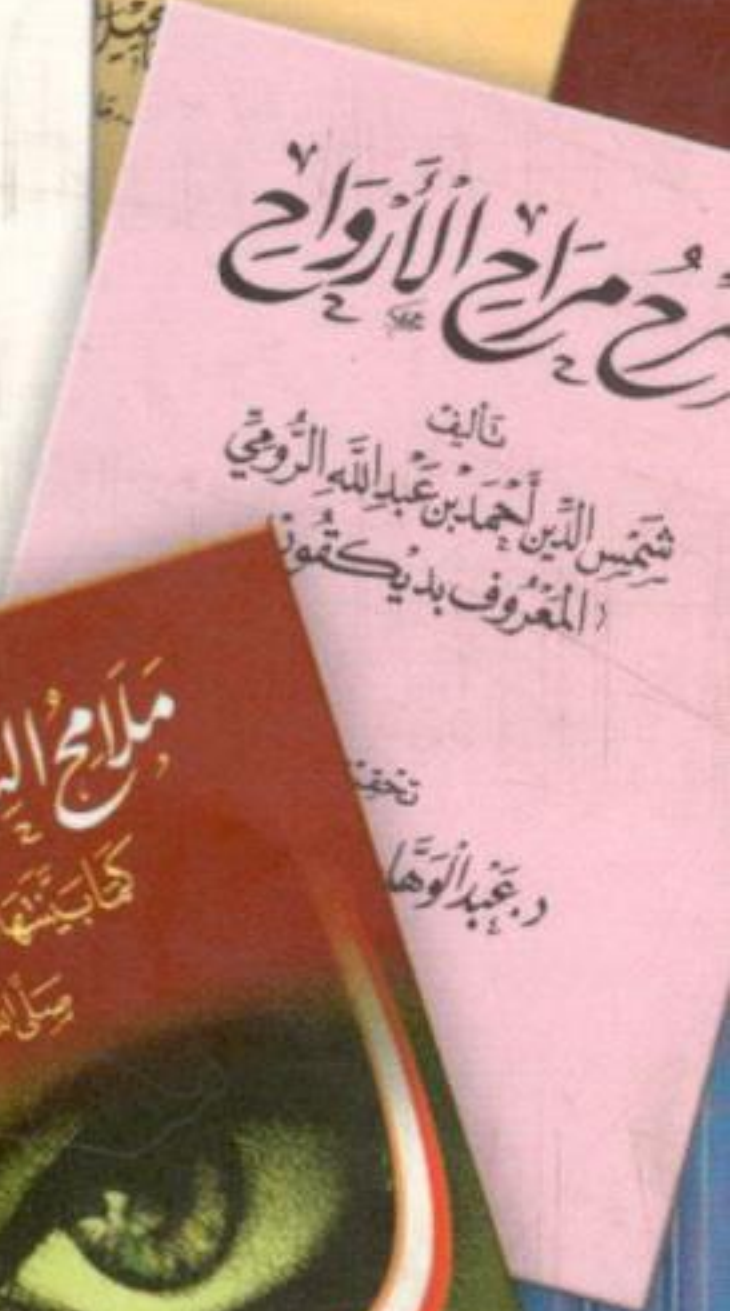 مَرَاحِ الْأَرْوَاحِ
تَأليف
شَمْسِ الدِّين أَحْمَد بن عَبْدِ اللَّهِ الرُّومِيِّ
(المَعْرُوف بديكنقوز
د. عَبْد الْوَهَّا
مَلَامِحُ
كَمَا بَيَّنَهَا
صَلَّى